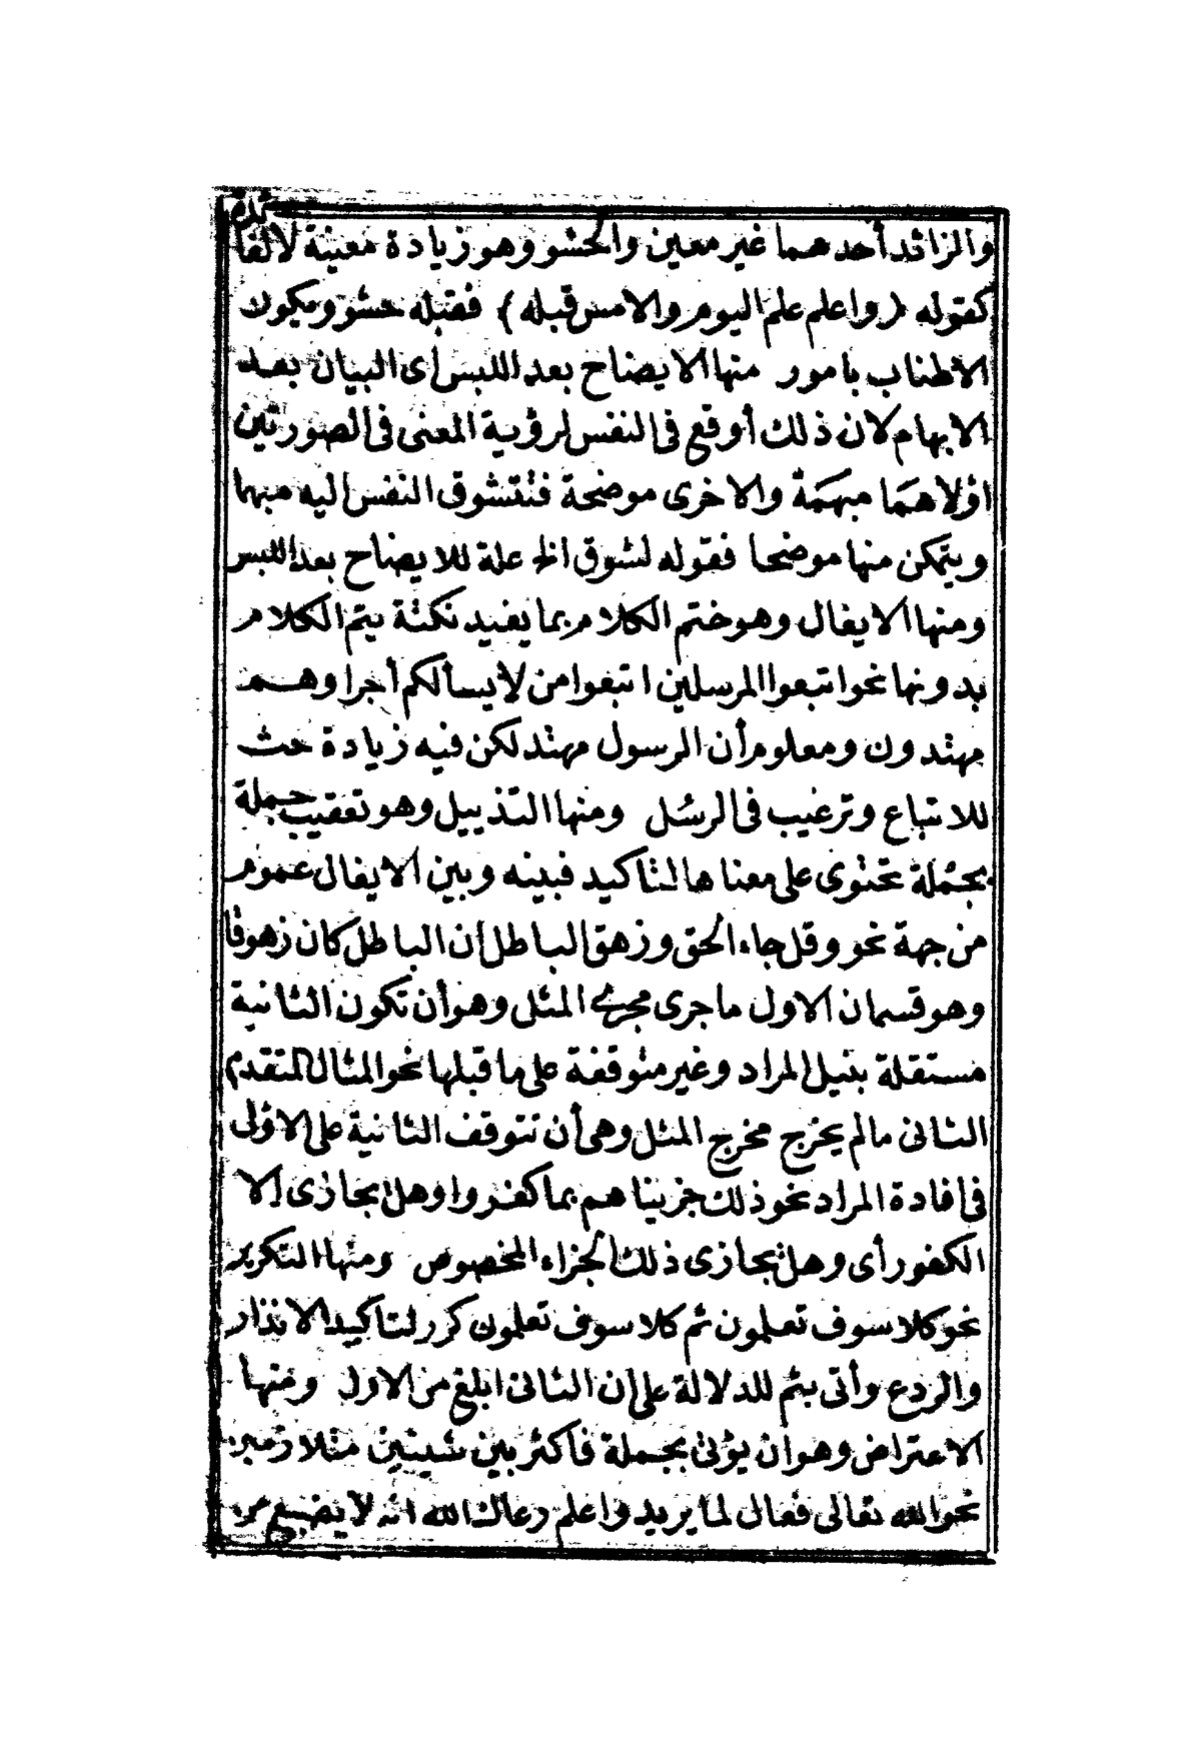 والزائد أحدهما غير معين والحشو وهو زيادة معينة لالفائدة
كقوله (واعلم علم اليوم والامس قبله) فقبله حشو ويكون
الاطناب بامور منها الايضاح بعد اللبس اى البيان بعد
الابهام لان ذلك أوقع فى النفس لرؤية المعنى فى الصورتين
اولاهما مبهمة والاخرى موضحة فتتشوق النفس اليه مبهما
ويتمكن منها موضحا فقوله لشوق الخ علة للايضاح بعد اللبس
ومنها الايغال وهو ختم الكلام بما يفيد نكتة يتم الكلام
بدونها نحو اتبعوا المرسلين اتبعوا من لا يسألكم أجرا وهم
مهتدون ومعلوم أن الرسول مهتد لكن فيه زيادة حث
للاتباع وترغيب فى الرسل ومنها التذييل وهو تعقيب جملة
بجملة تحتوى على معناها لتاكيد فبينه وبين الايغال عموم
من جهة نحو وقل جاء الحق وزهق الباطل ان الباطل كان زهوقا
وهو قسمان الاول ما جرى مجرى المثل وهو أن تكون الثانية
مستقلة بنيل المراد وغير متوقفة على ما قبلها نحو المثال المتقدم
الثانى مالم يخرج مخرج المثل وهى أن تتوقف الثانية على الاولى
فى افادة المراد نحو ذلك جزيناهم بما كفروا وهل يجازى الا
الكفور أى وهل يجازى ذلك الجزاء المخصوص ومنها التكرير
نحو كلا سوف تعلمون ثم كلا سوف تعلمون كرر لتاكيد الانذار
والردع وأتى بثم للدلالة على ان الثانى ابلغ من الاول ومنها
الاعتراض وهو ان يؤتى بجملة فاكثر بين شيئين متلازمين
نحو الله تعالى فعال لما يريد واعلم رعاك الله انه لا يضيع من